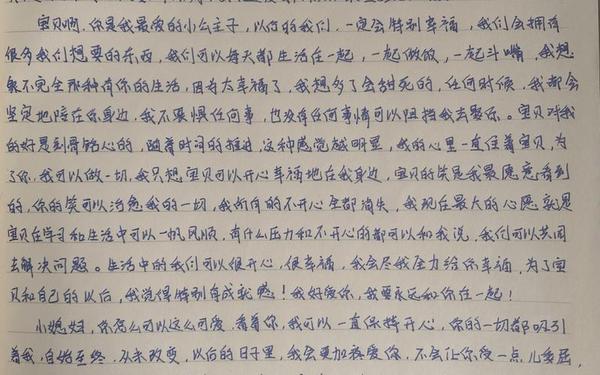 宝贝啊,你是我最爱的小公主子,以后的我们,一定会特别幸福,我们会拥有
很多我们想要的东西,我们可以每天都生活在一起,一起做饭,一起斗嘴,我想
象不完全那种有你的生活,因为太幸福了,我想多了会甜死的,任何时候,我都会
坚定地陪在你身边,我不畏惧任何事,也没有任何事情可以阻挡我去娶你。宝贝对我
的好是刻骨铭心的,随着时间的推进,这种感觉越明显,我的心里一直住着宝贝,为
了你,我可以做一切,我只想宝贝可以开心幸福地在我身边,宝贝的笑是我最愿意看到
的,你的笑可以治愈我的一切,我所有的不开心全都消失,我现在最大的心愿就是
宝贝在学习和生活中可以一帆风顺,有什么压力和不开心的都可以和我说,我们可以共同
去解决问题。生活中的我们可以很开心,很幸福,我会尽我全力给你幸福,为了宝
贝和自己的以后,我觉得特别有成就感!我好爱你,我要永远和你在一起!
小媳妇,你怎么可以这么可爱,看着你,我可以一直保持开心,你的一切都吸引
着我,自始至终,从未改变,以后的日子里,我会更加疼爱你,不会让你受一点儿委屈,